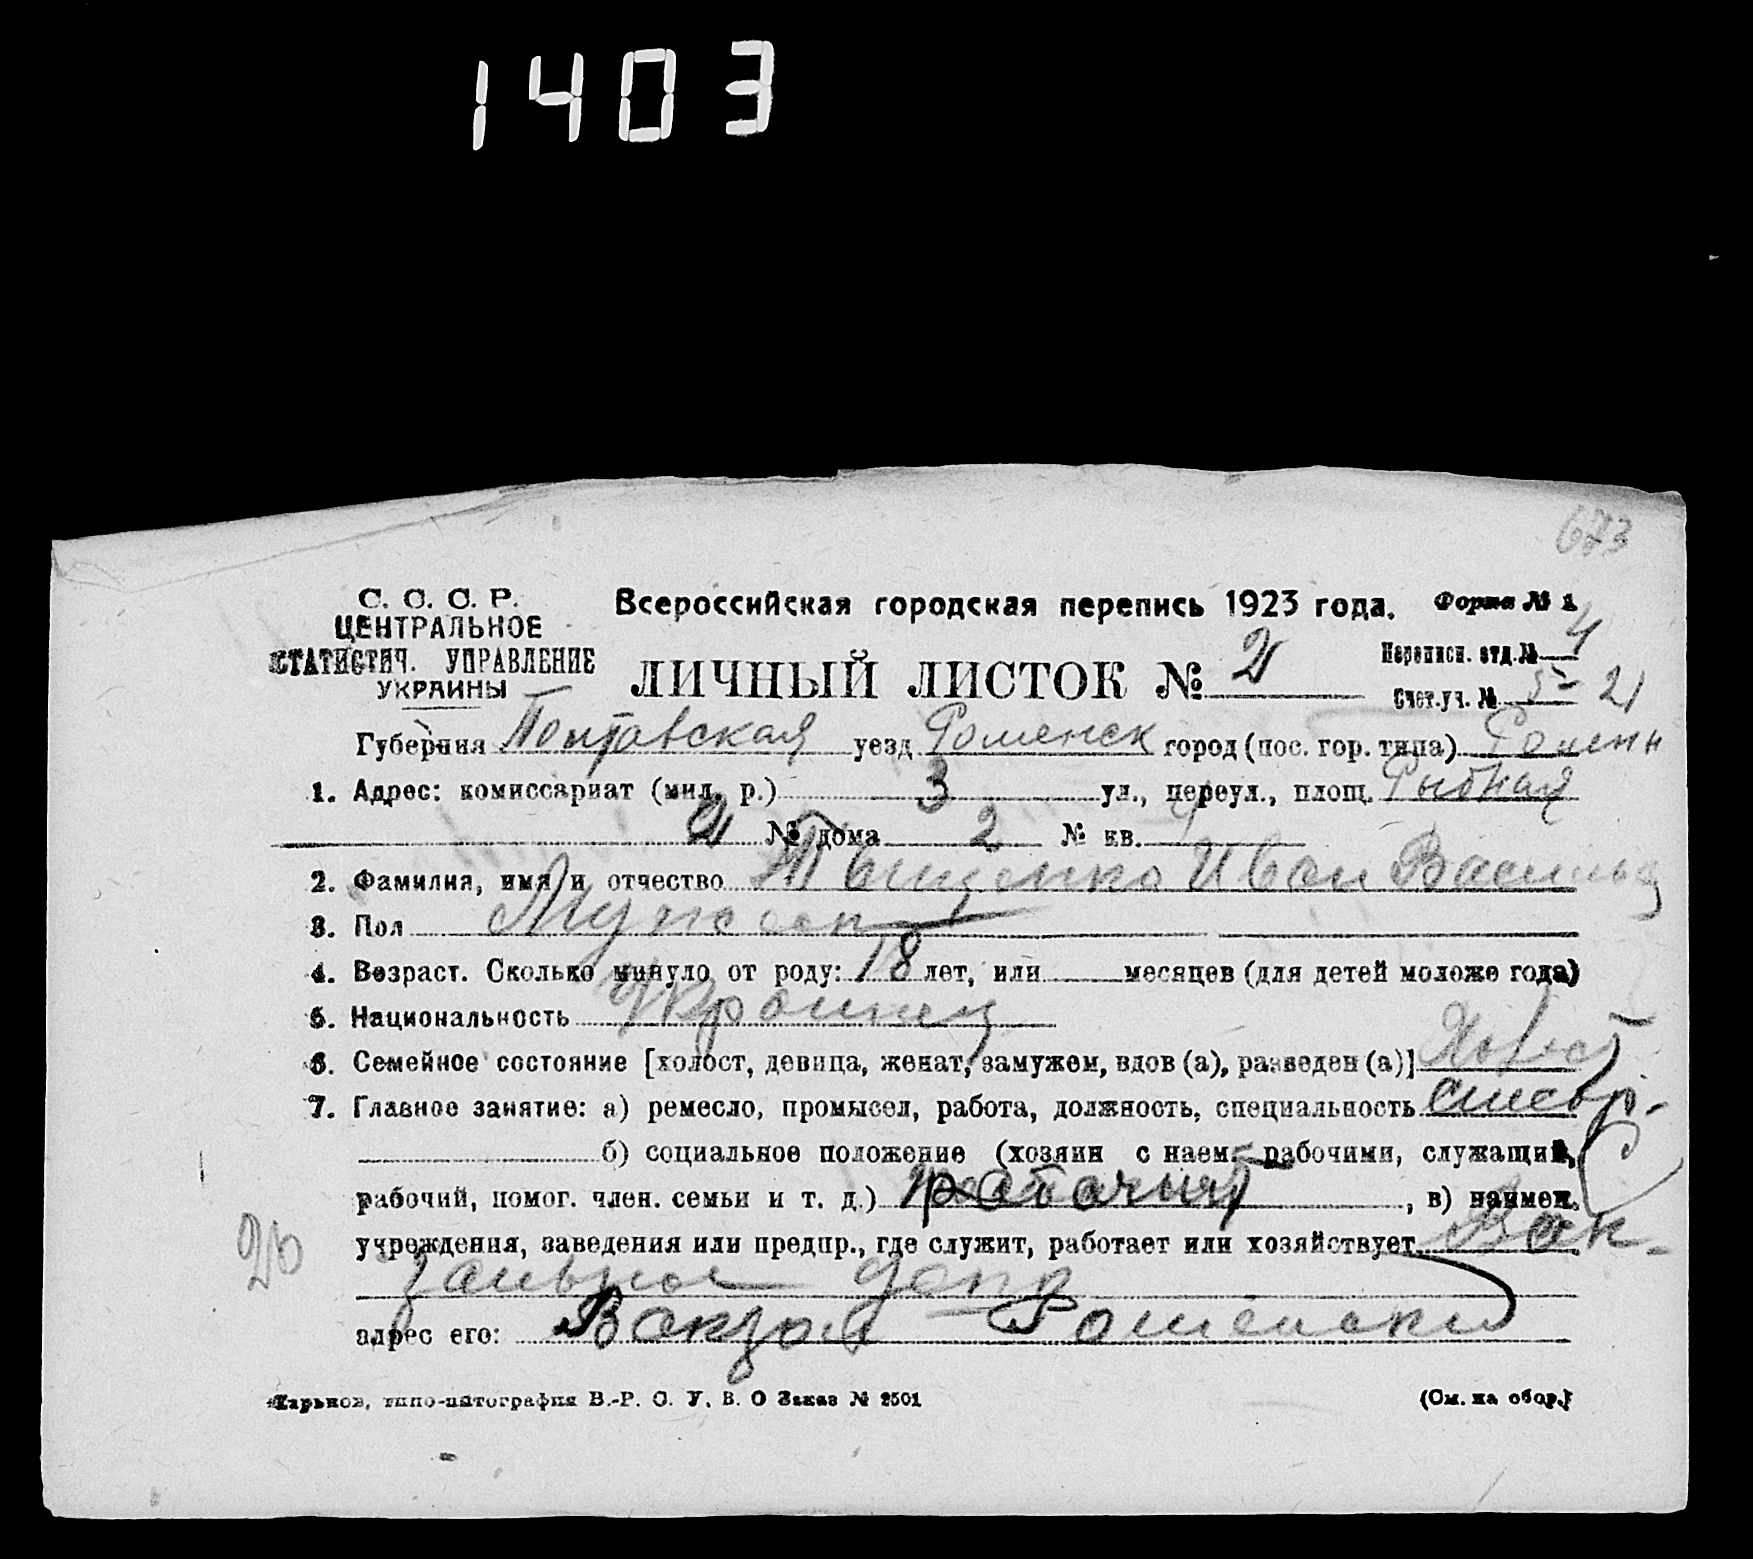 1403
673
С. С. С. Р.
ЦЕНТРАЛЬНОЕ
СТАТИСТИЧ. УПРАВЛЕНИЕ
УКРАИНЫ
Всероссийская городская перепись 1923 года.
Форма № 1
ЛИЧНЫЙ ЛИСТОК № 2
Переписн. отд. № 4
Счет. уч. № 5 - 21
Губерния Полтавская уезд Роменск город (пос. гор. типа) Ромены
1. Адрес: комиссариат (мил. р.) 3 ул., переул., площ. Рыбная
№ дома 2 № кв.
2. Фамилия, имя и отчество Тыщенко Иван Василье
3. Пол Мужеск
4. Возраст. Сколько минуло от роду: 18 лет, или месяцев (для детей моложе года)
5. Национальность Украинец
6. Семейное состояние [холост, девица, женат, замужем, вдов (а), разведен (а)] Холост
7. Главное занятие: а) ремесло, промысел, работа, должность, специальность слесар.
б) социальное положение (хозяин с наем. рабочими, служащий,
рабочий, помог. член. семьи и т. д.) рабочий, в) наимен.
учреждения, заведения или предпр., где служит, работает или хозяйствует Вок-
зальное депо
адрес его: Вокзал Роменский
26
Харьков, типо-литография В.-Р. С. У. В. О Заказ № 2501
(См. на обор.)